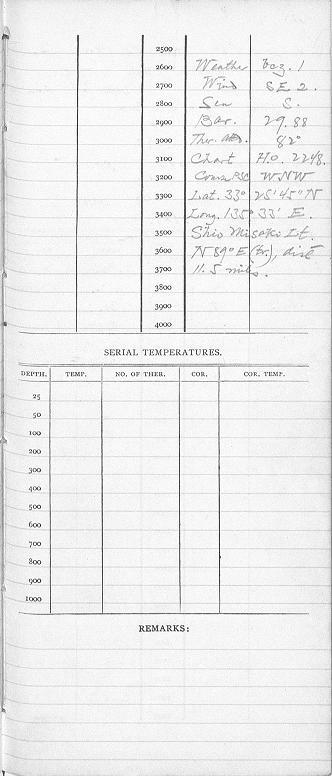 2500
2600 Weather bcz. 1
2700 Wind SE 2.
2800 Sea S.
2900 Bar. 29.88
3000 Ther. 82°
3100 Chart H.O. 2248.
3200 Course PSC WNW
3300 Lat. 33° 25' 45" N
3400 Long. 135° 33' E.
3500 Shio Misaki Lt.
3600 N 89° E (tr.), dist
3700 11.5 miles.
3800
3900
4000
SERIAL TEMPERATURES.
DEPTH. TEMP. NO. OF THER. COR. COR. TEMP.
25
50
100
200
300
400
500
600
700
800
900
1000
REMARKS: